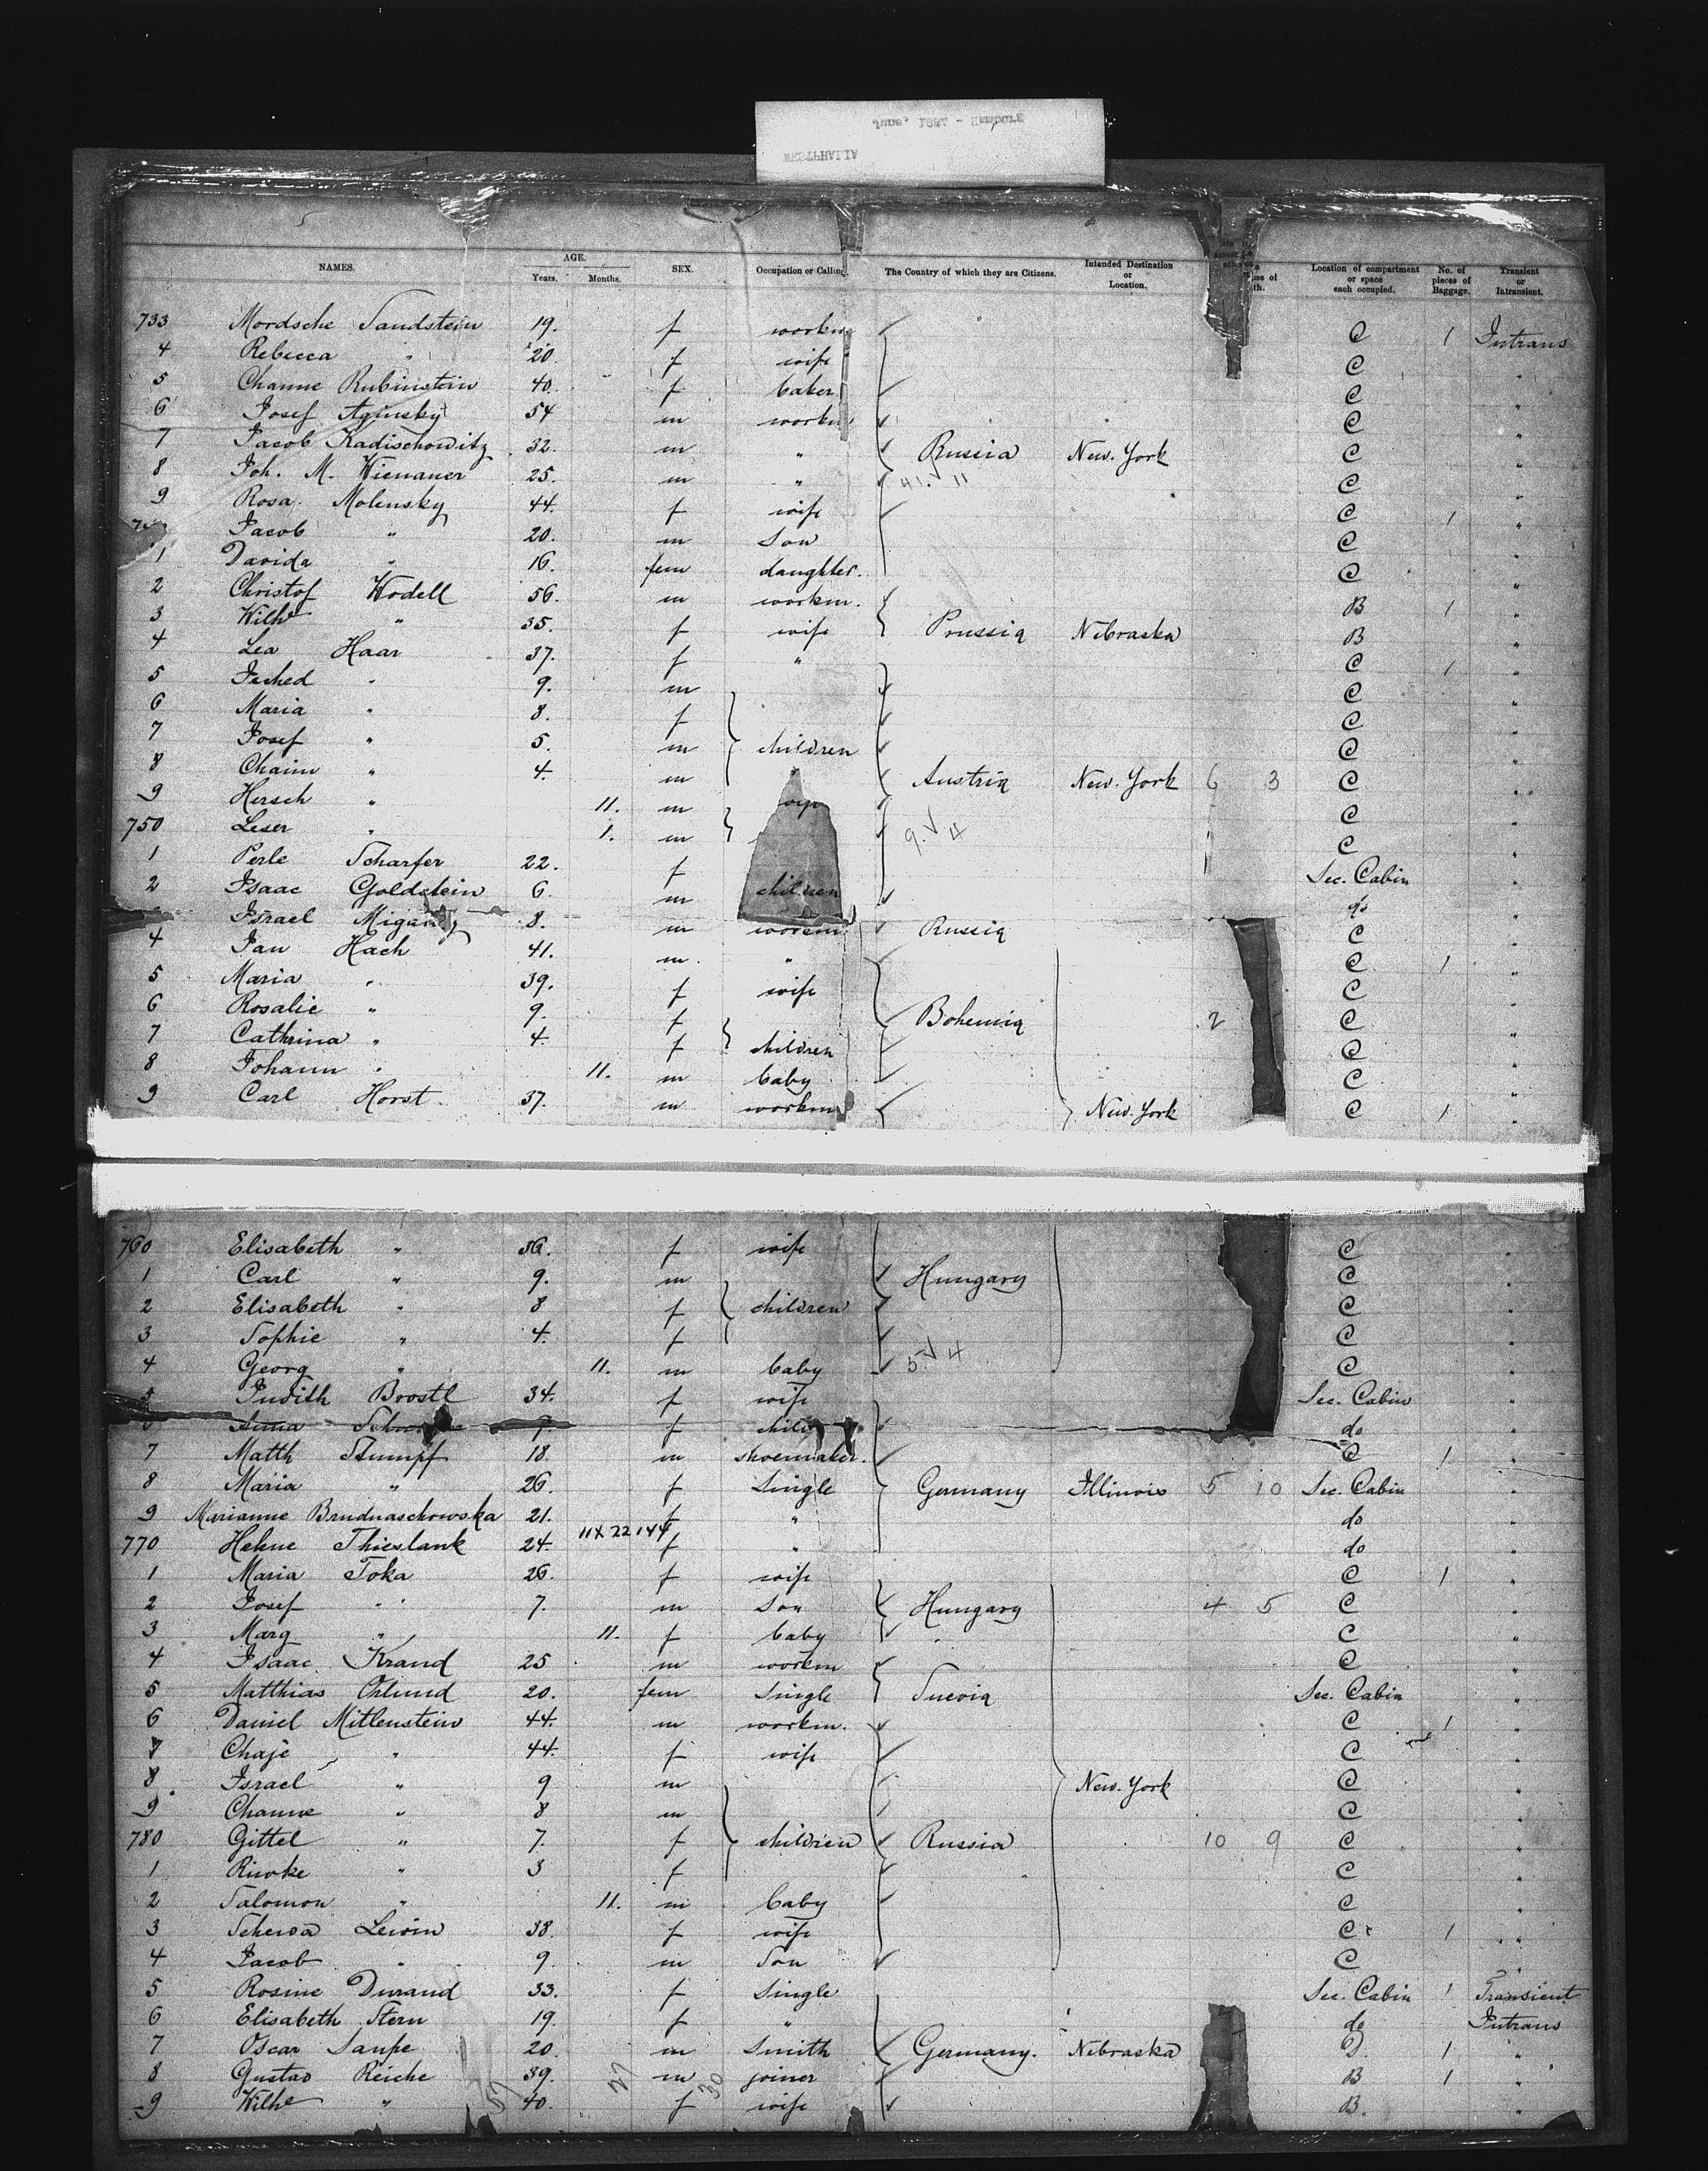 June, 1887 - Hamburg
WESTPHALIA
NAMES. AGE. Years. Months. SEX. Occupation or Calling. The Country of which they are Citizens. Intended Destination or Location. Location of compartment or space each occupied. No. of pieces of Baggage. Transient or Intransient.
733 Mordsche Sandstein 19. f workm C 1 Intrans
4 Rebecca " 20. f wife C "
5 Channe Rubinstein 40. f baker C "
6 Josef Aginsky 54 m workm C "
7 Jacob Kadischowitz 32. m " Russia New. York C "
8 Joh. M. Wienauer 25. m " 41. 11 C "
9 Rosa Molensky 44. f wife C 1 "
Jacob " 20. m Son C "
1 Davida " 16. fem daughter. C "
2 Christof Wodell 56. m workm. B 1 "
3 Wilhe " 35. f wife Prussia Nebraska B "
4 Lea Haar 37. f " C 1 "
5 Jeched " 9. m C "
6 Maria " 8. f C "
7 Josef " 5. m children C "
8 Chaim " 4. m Austria New. York 6 3 C "
9 Hersch " 11. m C "
750 Leser " 1. m 9. 4 C "
1 Perle Scharfer 22. f Sec. Cabin "
2 Isaac Goldstein 6. m children do "
Israel 8. m workm. Russia C "
4 Jan Hach 41. m. " C 1 "
5 Maria " 39. f wife C "
6 Rosalie " 9. f Bohemia 2 C "
7 Cathrina " 4. f children C "
8 Johann " 11. m baby C "
9 Carl Horst 37. m workm New. York C 1 "
760 Elisabeth " 36. f wife C "
1 Carl " 9. m Hungary C "
2 Elisabeth " 8 f children C "
3 Sophie " 4. f C "
4 Georg " 11. m baby 5. 4 C "
Judith Brostl 34. f wife Sec. Cabin "
Anna f child do "
7 Matth Stumpf 18. m shoemaker. C 1 "
8 Maria " 26. f Single Germany Illinois 5 10 Sec. Cabin "
9 Marianne Brudnaschowska 21. f " do "
11X22144
770 Helene Thieslank 24. f " do "
1 Maria Toka 26. f wife C 1 "
2 Josef " 7. m Son Hungary 4 5 C "
3 Marg " 11. f baby C "
4 Isaac Krand 25 m workm C "
5 Matthias Oslund 20. fem Single Suevia Sec. Cabin "
6 Daniel Mitlenstein 44. m workm. C 1 "
7 Chaje " 44. f wife C "
8 Israel " 9 m New. York C "
9 Channe " 8 m C "
780 Gittel " 7. f children Russia 10 9 C "
1 Riwke " 3 f C "
2 Salomon " 11. m baby C "
3 Schewa Lewin 38. f wife C 1 "
4 Jacob " 9. m Son C "
5 Rosine Durand 33. f Single Sec. Cabin 1 Transient
6 Elisabeth Stern 19 f " do Intrans
7 Oscar Saupe 20. m Smith Germany. Nebraska D. 1 "
8 Gustav Reiche 39. m joiner B 1 "
9 Wilhe " 40. f wife B. "